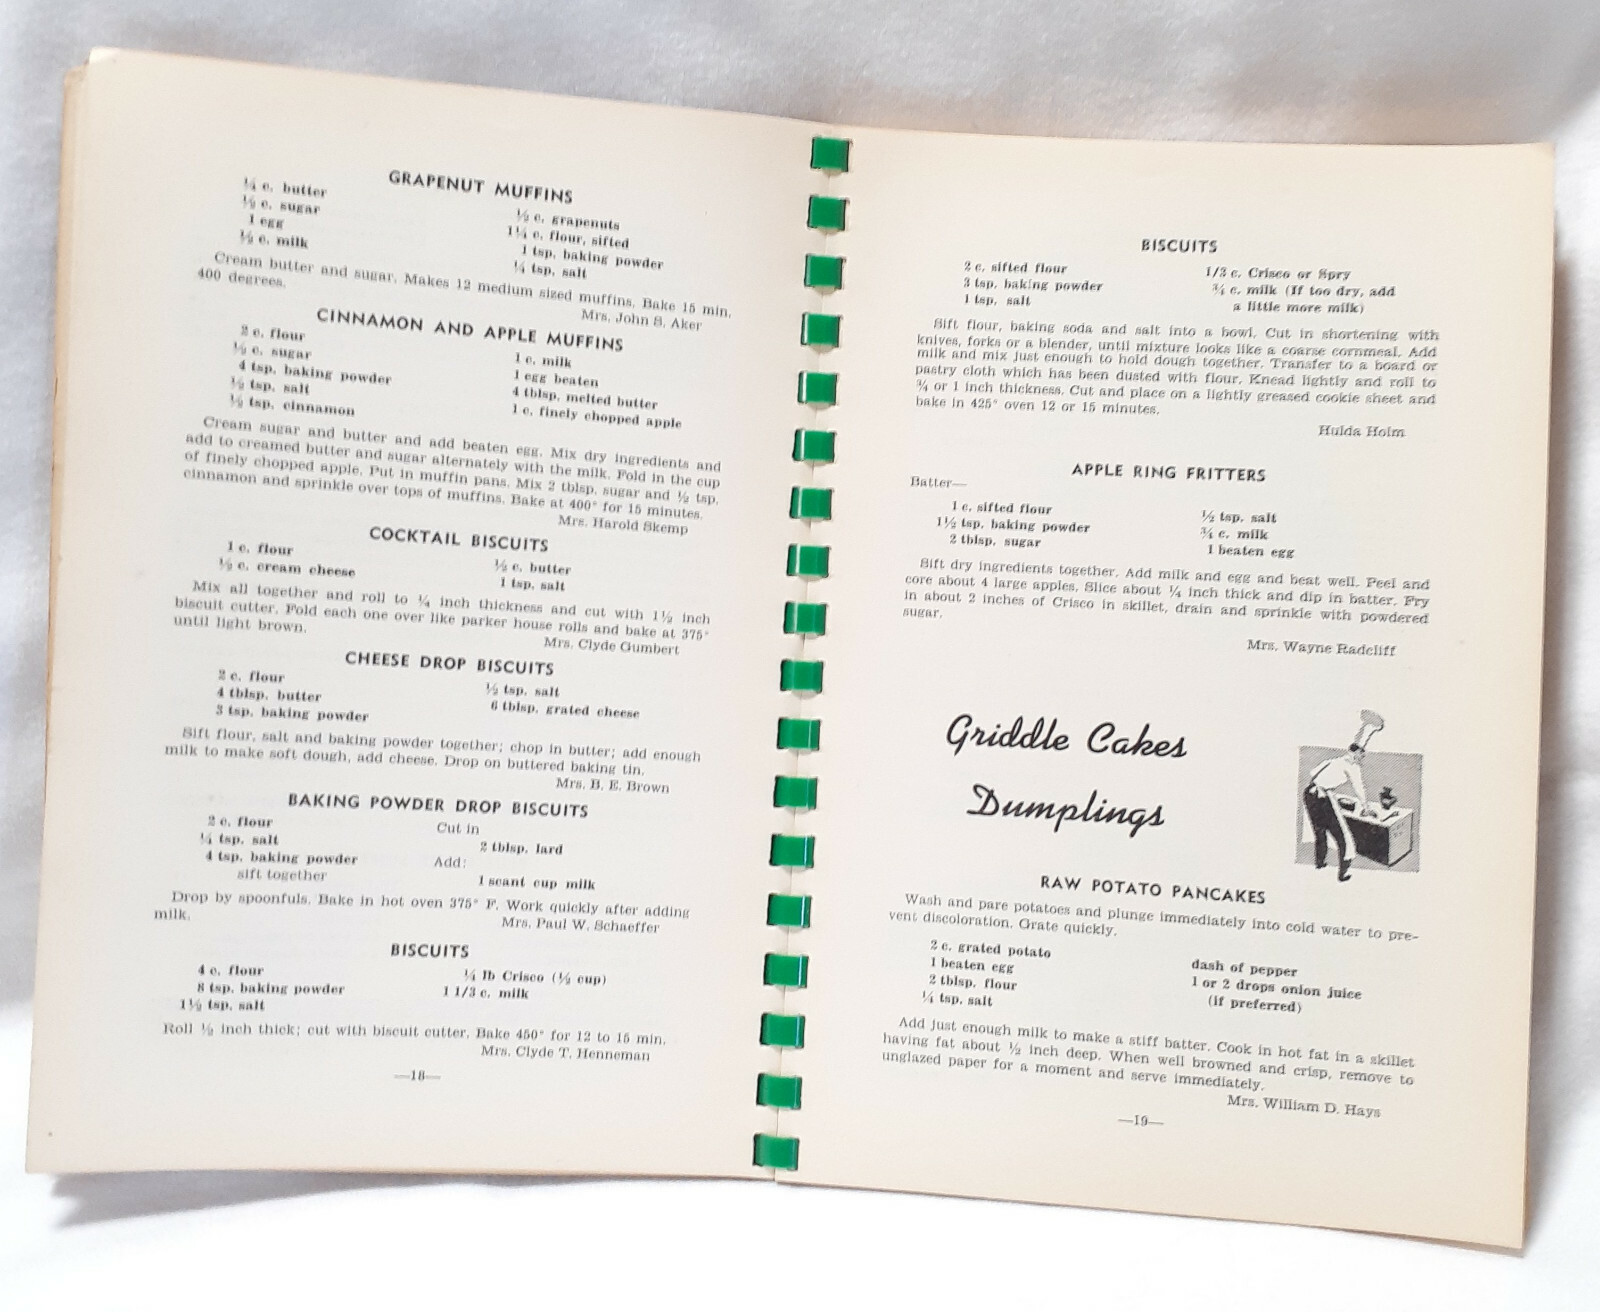 GRAPENUT MUFFINS
¼ c. butter
½ c. sugar
1 egg
½ c. milk
½ c. grapenuts
1¼ c. flour, sifted
1 tsp. baking powder
¼ tsp. salt
Cream butter and sugar. Makes 12 medium sized muffins. Bake 15 min.
400 degrees.
Mrs. John S. Aker
CINNAMON AND APPLE MUFFINS
2 c. flour
½ c. sugar
4 tsp. baking powder
½ tsp. salt
½ tsp. cinnamon
1 c. milk
1 egg beaten
4 tblsp. melted butter
1 c. finely chopped apple
Cream sugar and butter and add beaten egg. Mix dry ingredients and
add to creamed butter and sugar alternately with the milk. Fold in the cup
of finely chopped apple. Put in muffin pans. Mix 2 tblsp. sugar and ½ tsp.
cinnamon and sprinkle over tops of muffins. Bake at 400° for 15 minutes.
Mrs. Harold Skemp
COCKTAIL BISCUITS
1 c. flour
½ c. cream cheese
½ c. butter
1 tsp. salt
Mix all together and roll to ¼ inch thickness and cut with 1½ inch
biscuit cutter. Fold each one over like parker house rolls and bake at 375°
until light brown.
Mrs. Clyde Gumbert
CHEESE DROP BISCUITS
2 c. flour
4 tblsp. butter
3 tsp. baking powder
½ tsp. salt
6 tblsp. grated cheese
Sift flour, salt and baking powder together; chop in butter; add enough
milk to make soft dough, add cheese. Drop on buttered baking tin.
Mrs. B. E. Brown
BAKING POWDER DROP BISCUITS
2 c. flour
¼ tsp. salt
4 tsp. baking powder
sift together
Cut in
2 tblsp. lard
Add:
1 scant cup milk
Drop by spoonfuls. Bake in hot oven 375° F. Work quickly after adding
milk.
Mrs. Paul W. Schaeffer
BISCUITS
4 c. flour
8 tsp. baking powder
1½ tsp. salt
¼ lb Crisco (½ cup)
1 1/3 c. milk
Roll ½ inch thick; cut with biscuit cutter. Bake 450° for 12 to 15 min.
Mrs. Clyde T. Henneman
—18—
BISCUITS
2 c. sifted flour
3 tsp. baking powder
1 tsp. salt
1/3 c. Crisco or Spry
¾ c. milk (If too dry, add
a little more milk)
Sift flour, baking soda and salt into a bowl. Cut in shortening with
knives, forks or a blender, until mixture looks like a coarse cornmeal. Add
milk and mix just enough to hold dough together. Transfer to a board or
pastry cloth which has been dusted with flour. Knead lightly and roll to
¾ or 1 inch thickness. Cut and place on a lightly greased cookie sheet and
bake in 425° oven 12 or 15 minutes.
Hulda Holm
APPLE RING FRITTERS
Batter—
1 c. sifted flour
1½ tsp. baking powder
2 tblsp. sugar
½ tsp. salt
¾ c. milk
1 beaten egg
Sift dry ingredients together. Add milk and egg and beat well. Peel and
core about 4 large apples. Slice about ¼ inch thick and dip in batter. Fry
in about 2 inches of Crisco in skillet, drain and sprinkle with powdered
sugar.
Mrs. Wayne Radcliff
Griddle Cakes
Dumplings
RAW POTATO PANCAKES
Wash and pare potatoes and plunge immediately into cold water to pre-
vent discoloration. Grate quickly.
2 c. grated potato
1 beaten egg
2 tblsp. flour
¼ tsp. salt
dash of pepper
1 or 2 drops onion juice
(if preferred)
Add just enough milk to make a stiff batter. Cook in hot fat in a skillet
having fat about ½ inch deep. When well browned and crisp, remove to
unglazed paper for a moment and serve immediately.
Mrs. William D. Hays
—19—